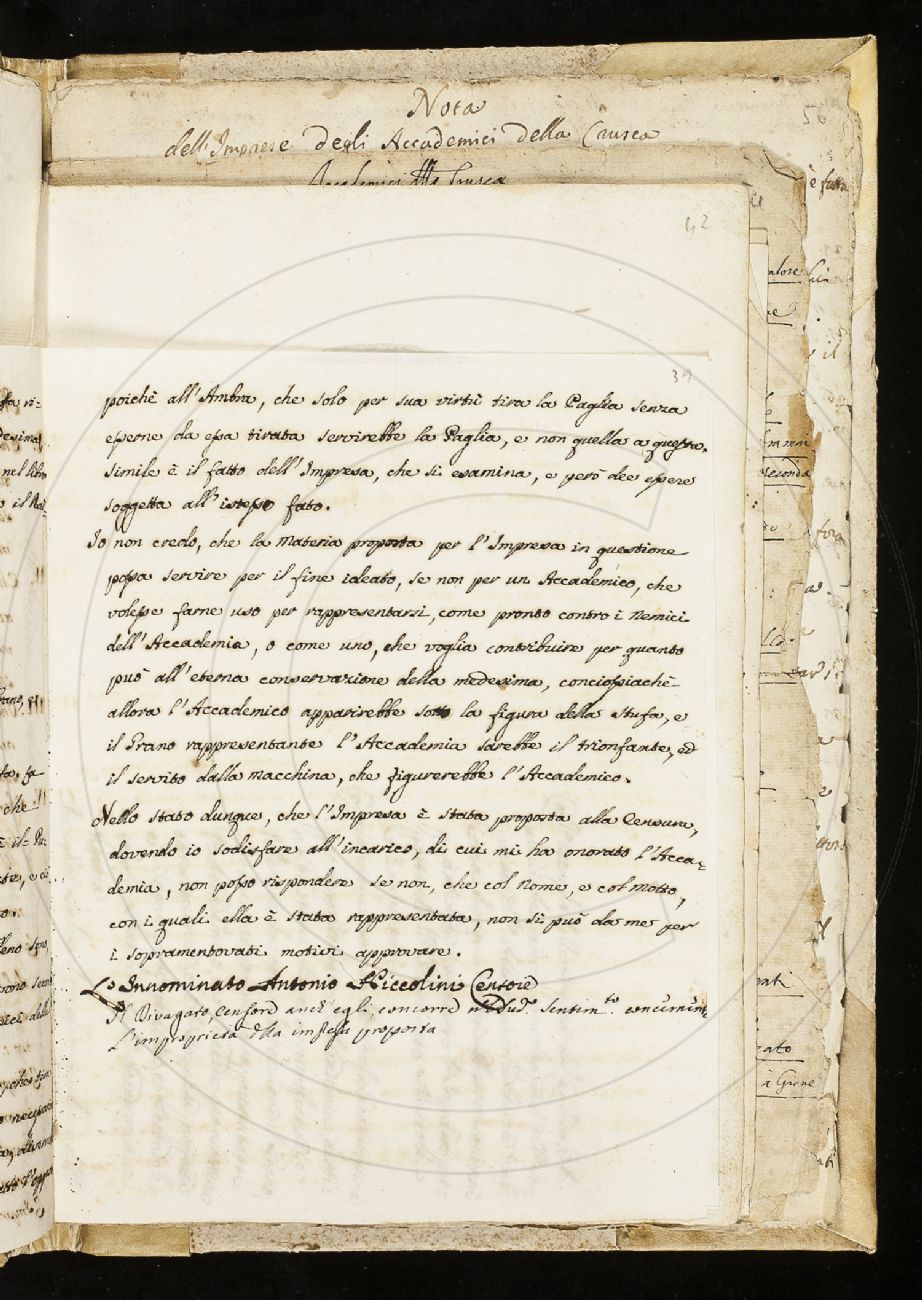 Nota
dell'Imprese degli Accademici della Crusca
56
Accademici della Crusca
42
39
poichè all'Ambra, che solo per sua virtù tira la Paglia senza
esserne da essa tirata servirebbe la Paglia, e non quella a questa.
simile è il fatto dell'Impresa, che si esamina, e però dee essere
soggetta all'istesso fato.
Io non credo, che la Materia proposta per l'Impresa in questione
possa servire per il fine ideato, se non per un Accademico, che
volesse farne uso per rappresentarsi, come pronto contro i Nemici
dell'Accademia, o come uno, che voglia contribuire per quanto
può all'eterna conservazione della medesima, conciossiachè
allora l'Accademico apparirebbe sotto la figura della Stufa, e
il Grano rappresentante l'Accademia sarebbe il trionfante, ed
il servito dalla macchina, che figurerebbe l'Accademico.
Nello stato dunque, che l'Impresa è stata proposta alla Censura,
dovendo io sodisfare all'incarico, di cui mi ha onorato l'Acca=
demia, non posso rispondere se non, che col Nome, e col Motto,
con i quali ella è stata rappresentata, non si può da me per
i sopramentovati motivi approvare.
L'Innominato Antonio Niccolini Censore
Il Divagato, Censore anch'egli, concorre sentim.to
L'improprietà della impresa proposta